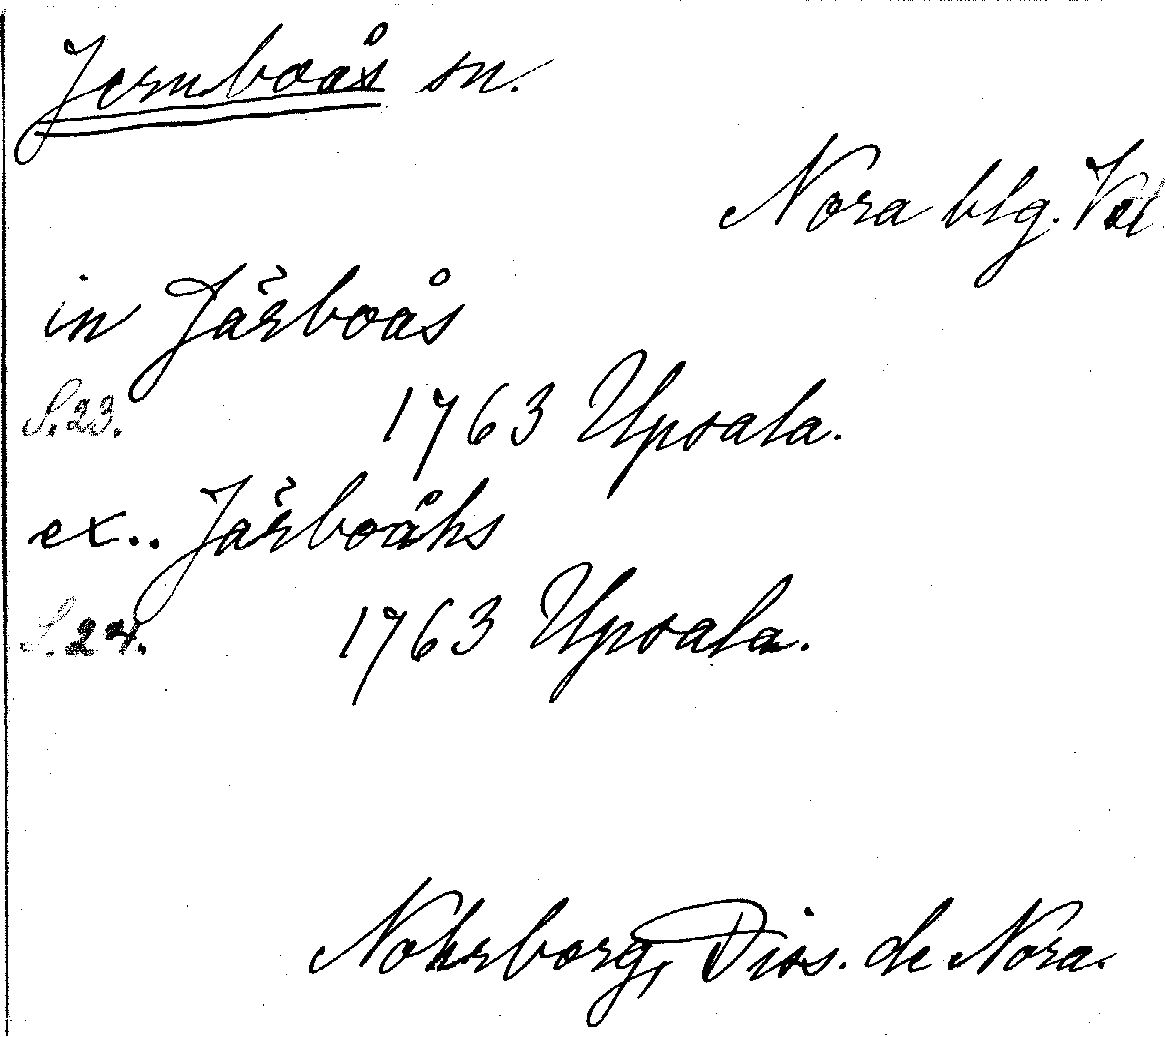 Jernboås sn.
Nora blg. Vstl
in Järboås
S. 23. 1763 Upsala.
ex.. Järboåhs
S. 24. 1763 Upsala.
Nohrborg, Diss. de Nora.